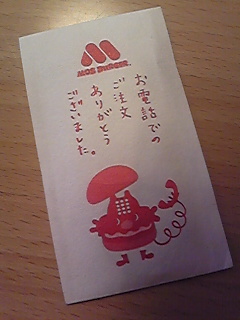 MOS BURGER
お電話での
ご注文
ありがとう
ございました。